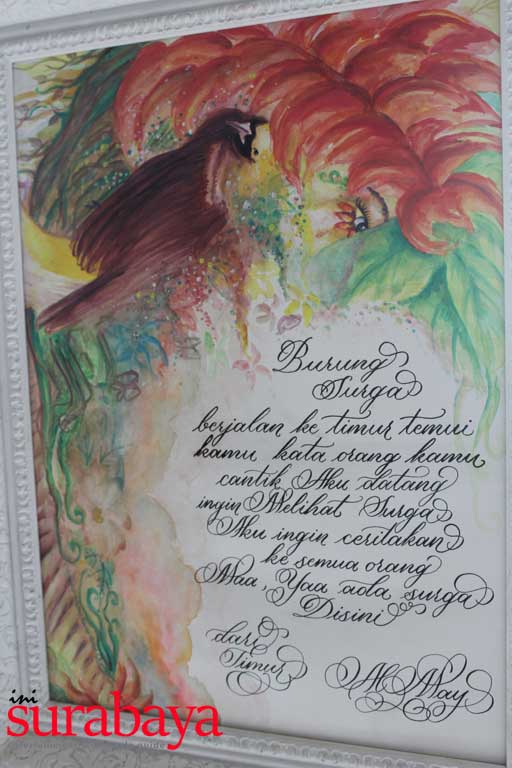 Burung
Surga
berjalan ke timur temui
kamu kata orang kamu
cantik Aku datang
ingin Melihat Surga
Aku ingin ceritakan
ke semua orang
Maa, Yaa ada surga
Disini
dari
Timur
Al May
ini
surabaya